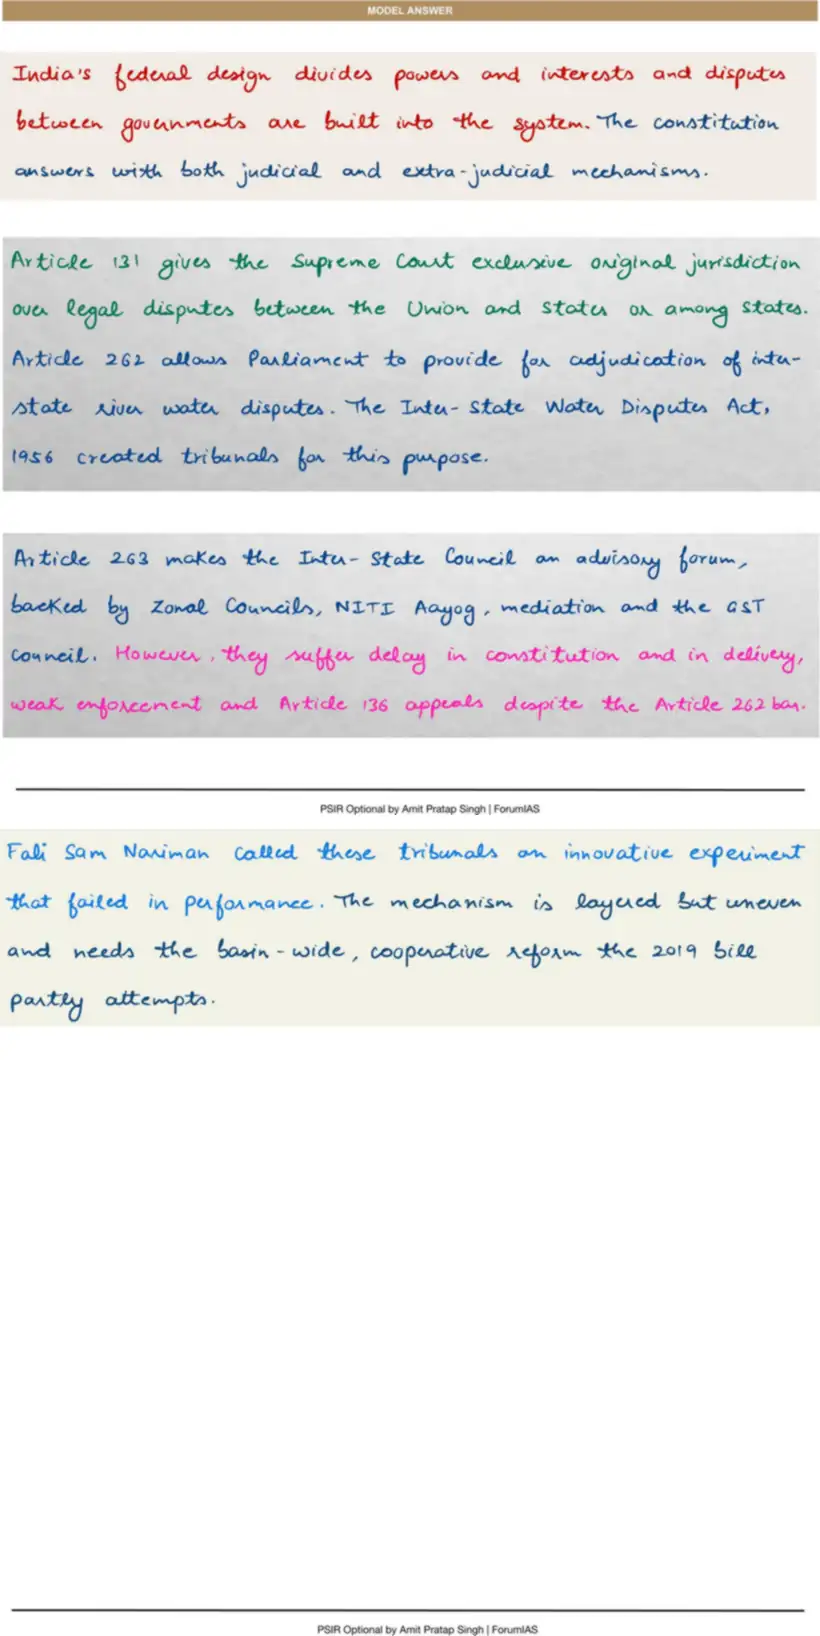 MODEL ANSWER
India's federal design divides powers and interests and disputes
between governments are built into the system. The constitution
answers with both judicial and extra-judicial mechanisms.
Article 131 gives the Supreme Court exclusive original jurisdiction
over legal disputes between the Union and States or among States.
Article 262 allows Parliament to provide for adjudication of inter-
state river water disputes. The Inter-State Water Disputes Act,
1956 created tribunals for this purpose.
Article 263 makes the Inter-State Council an advisory forum,
backed by Zonal Councils, NITI Aayog, mediation and the GST
Council. However, they suffer delay in constitution and in delivery,
weak enforcement and Article 136 appeals despite the Article 262 bar.
PSIR Optional by Amit Pratap Singh | ForumIAS
Fali Sam Nariman called these tribunals an innovative experiment
that failed in performance. The mechanism is layered but uneven
and needs the basin-wide, cooperative reform the 2019 bill
partly attempts.
PSIR Optional by Amit Pratap Singh | ForumIAS